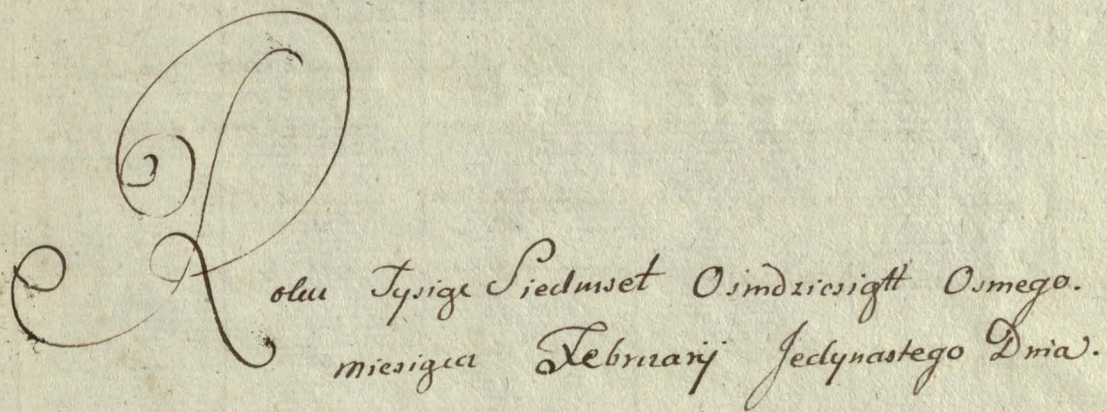 Roku Tysiąc Siedmset Osmdziesiątt Osmego.
miesiąca Februarij Jedynastego Dnia.